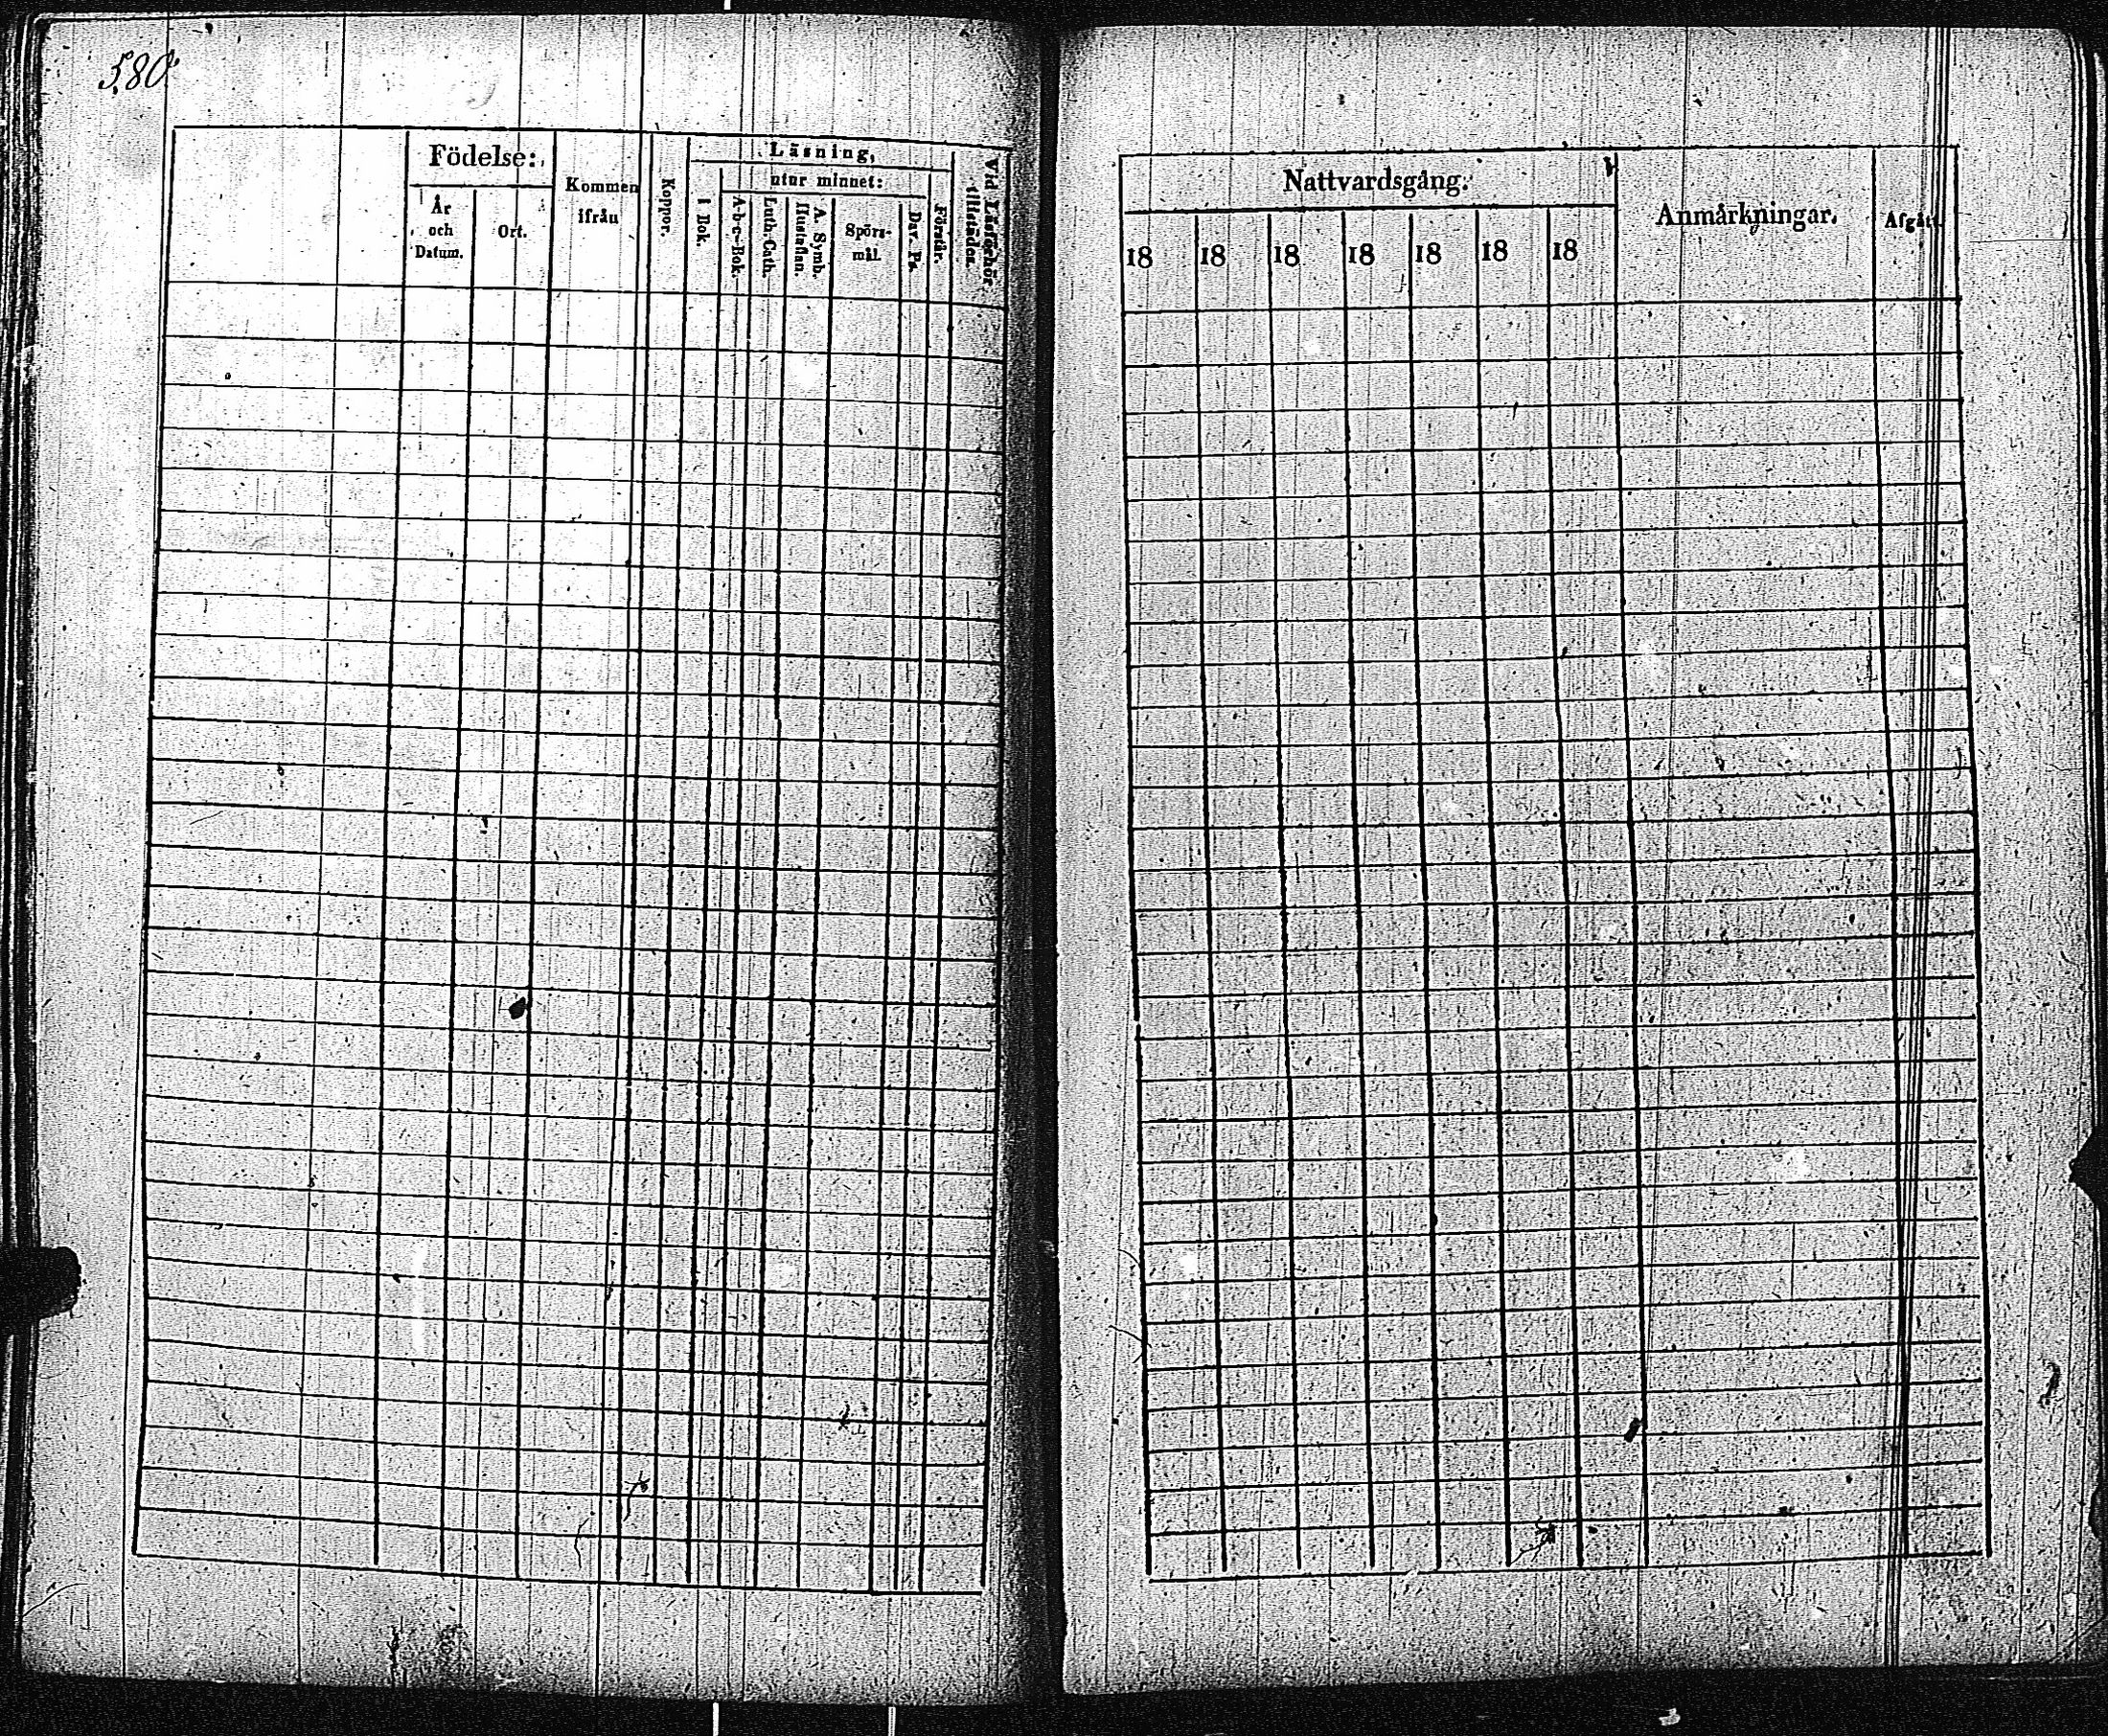 580
Födelse:
År
och
Datum.
Ort.
Kommen
ifrån
Koppor.
Läsning,
i Bok.
utur minnet:
A-b-c-Bok.
Luth. Cath.
A. Symb.
Hustaflan.
Spörs-
mål.
Dav. Ps.
Förstår.
Vid Läsförhör
tillstädes.
Nattvardsgång.
18 18 18 18 18 18 18
Anmärkningar.
Afgått